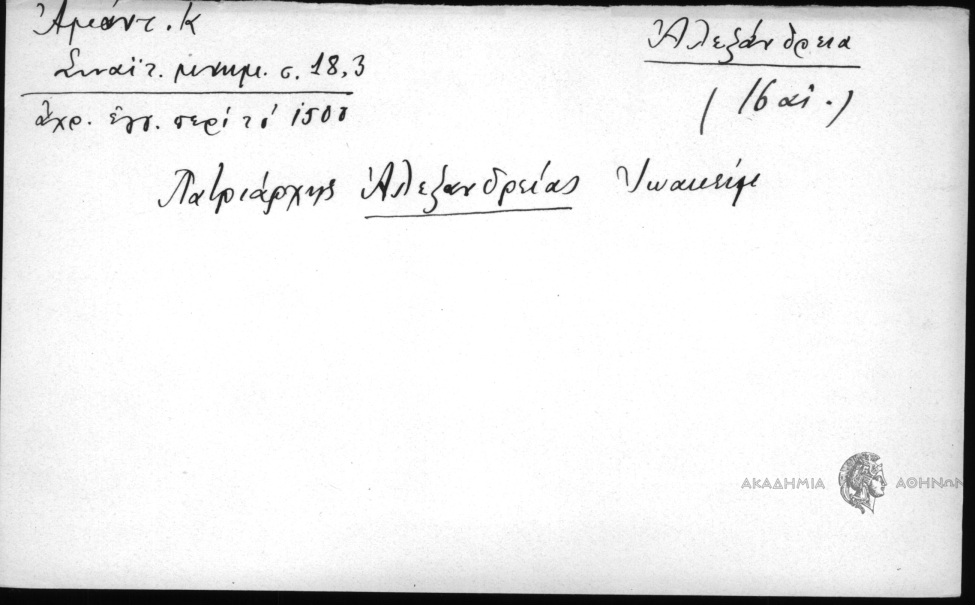 Ἀμάντ. Κ
Σιναϊτ. μνημ. σ. 18,3
ἀχρ. ἔγγ. περὶ τὸ 1500
Ἀλεξάνδρεια
(16 αἰ.)
Πατριάρχης Ἀλεξανδρείας Ἰωακείμ
ΑΚΑΔΗΜΙΑ ΑΘΗΝΩΝ